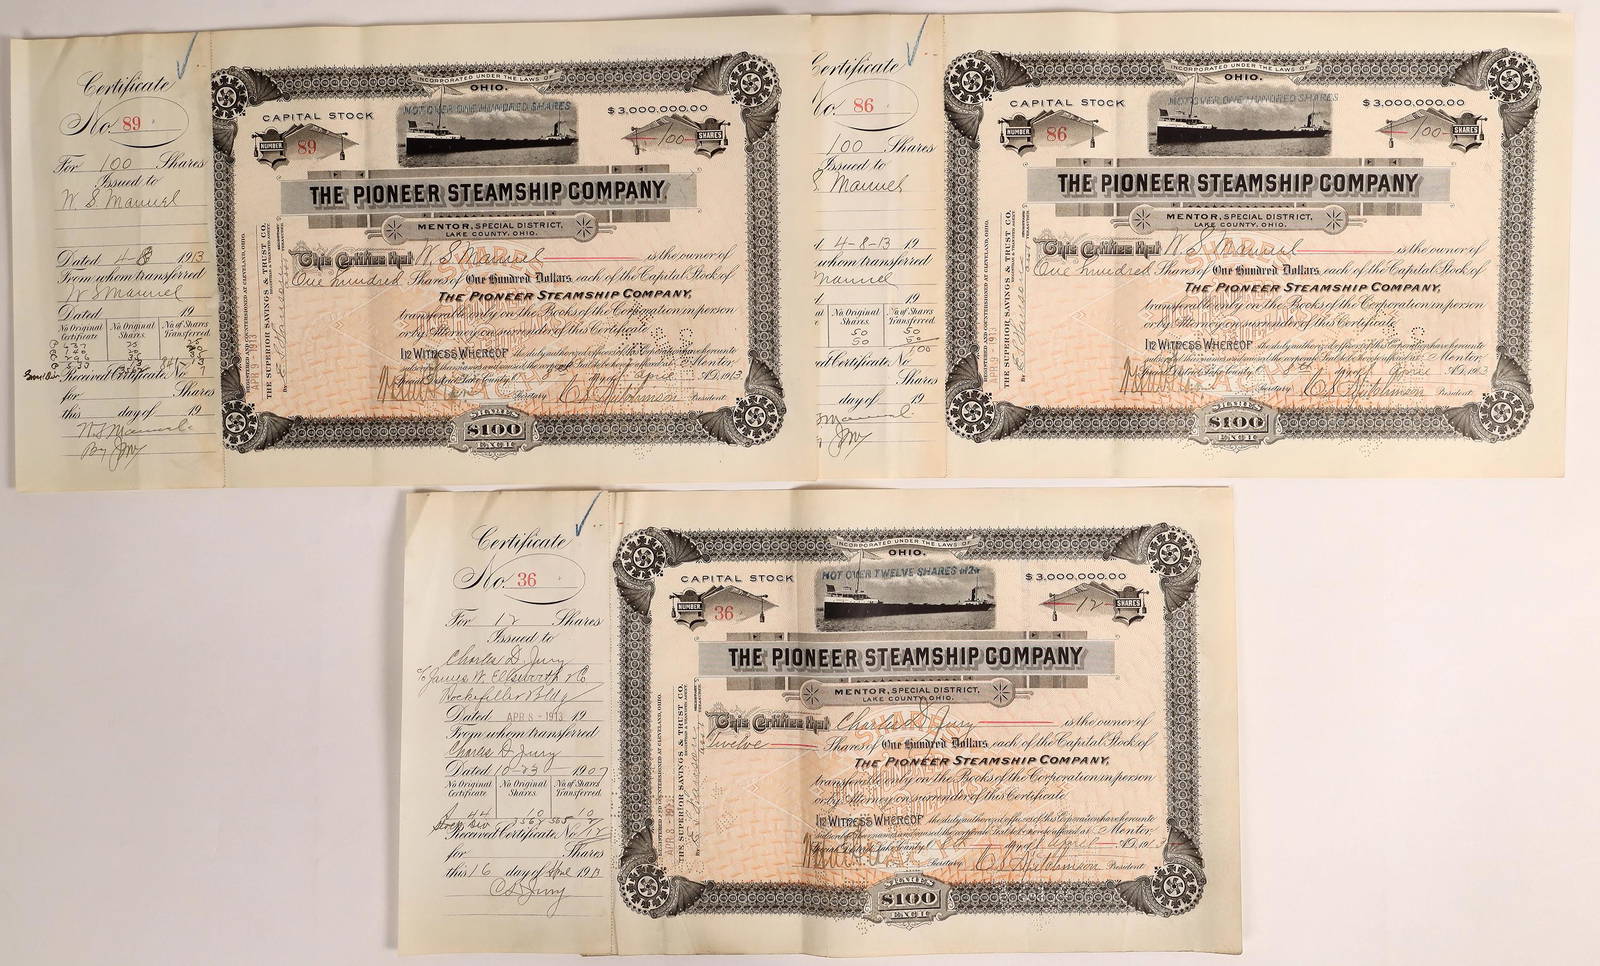 Certificate
No. 89
For 100 Shares
Issued to
W. S Manuel
Dated 4-8 1913
From whom transferred
W S Manuel
Dated 19
No Original Certificate
No Original Shares.
No of Shares Transferred.
Received Certificate No
for Shares
this day of 19
W S Manuel
By
INCORPORATED UNDER THE LAWS OF
OHIO.
NOT OVER ONE HUNDRED SHARES
CAPITAL STOCK
$3,000,000.00
NUMBER 89
100 SHARES
THE PIONEER STEAMSHIP COMPANY
MENTOR, SPECIAL DISTRICT,
LAKE COUNTY, OHIO.
This Certifies that W. S Manuel is the owner of
One hundred Shares of One Hundred Dollars each of the Capital Stock of
THE PIONEER STEAMSHIP COMPANY,
transferable only on the Books of the Corporation in person
or by Attorney on surrender of this Certificate.
IN WITNESS WHEREOF the duly authorized officers of this Corporation have hereunto
subscribed their names and caused the corporate Seal to be hereto affixed at Mentor,
Special District, Lake County, O. day of April A.D. 1913
Secretary C. L. Hutchinson President.
SHARES
$100
EACH
REGISTERED AND COUNTERSIGNED AT CLEVELAND, OHIO.
APR 9 - 1913
THE SUPERIOR SAVINGS & TRUST CO.
Certificate
No. 86
100 Shares
Issued to
S Manuel
4-8-13 19
whom transferred
Manuel
19
No Original Shares.
No of Shares Transferred.
50 50
50 50
100
Certificate No
Shares
day of 19
Manuel
INCORPORATED UNDER THE LAWS OF
OHIO.
NOT OVER ONE HUNDRED SHARES
CAPITAL STOCK
$3,000,000.00
NUMBER 86
100 SHARES
THE PIONEER STEAMSHIP COMPANY
MENTOR, SPECIAL DISTRICT,
LAKE COUNTY, OHIO.
This Certifies that W. S Manuel is the owner of
One hundred Shares of One Hundred Dollars each of the Capital Stock of
THE PIONEER STEAMSHIP COMPANY,
transferable only on the Books of the Corporation in person
or by Attorney on surrender of this Certificate.
IN WITNESS WHEREOF the duly authorized officers of this Corporation have hereunto
subscribed their names and caused the corporate Seal to be hereto affixed at Mentor,
Special District, Lake County, O. 8th day of April A.D. 1913
Secretary C. L. Hutchinson President.
SHARES
$100
EACH
REGISTERED AND COUNTERSIGNED AT CLEVELAND, OHIO.
APR 9 - 1913
THE SUPERIOR SAVINGS & TRUST CO.
Certificate
No. 36
For 12 Shares
Issued to
Charles D. Jury
c/o James W. Ellsworth & Co
Rockefeller Bldg
Dated APR 8 - 1913 19
From whom transferred
Charles D Jury
Dated 10-23 1907
No Original Certificate
No Original Shares.
No of Shares Transferred.
44 10 10
Stock Div
Received Certificate No
for Shares
this 16 day of April 1913
C D Jury
INCORPORATED UNDER THE LAWS OF
OHIO.
NOT OVER TWELVE SHARES
CAPITAL STOCK
$3,000,000.00
NUMBER 36
12 SHARES
THE PIONEER STEAMSHIP COMPANY
MENTOR, SPECIAL DISTRICT,
LAKE COUNTY, OHIO.
This Certifies that Charles D Jury is the owner of
Twelve Shares of One Hundred Dollars each of the Capital Stock of
THE PIONEER STEAMSHIP COMPANY,
transferable only on the Books of the Corporation in person
or by Attorney on surrender of this Certificate.
IN WITNESS WHEREOF the duly authorized officers of this Corporation have hereunto
subscribed their names and caused the corporate Seal to be hereto affixed at Mentor,
Special District, Lake County, O. day of April A.D. 1913
Secretary C. L. Hutchinson President
SHARES
$100
EACH
REGISTERED AND COUNTERSIGNED AT CLEVELAND, OHIO.
APR 8 - 1913
THE SUPERIOR SAVINGS & TRUST CO.